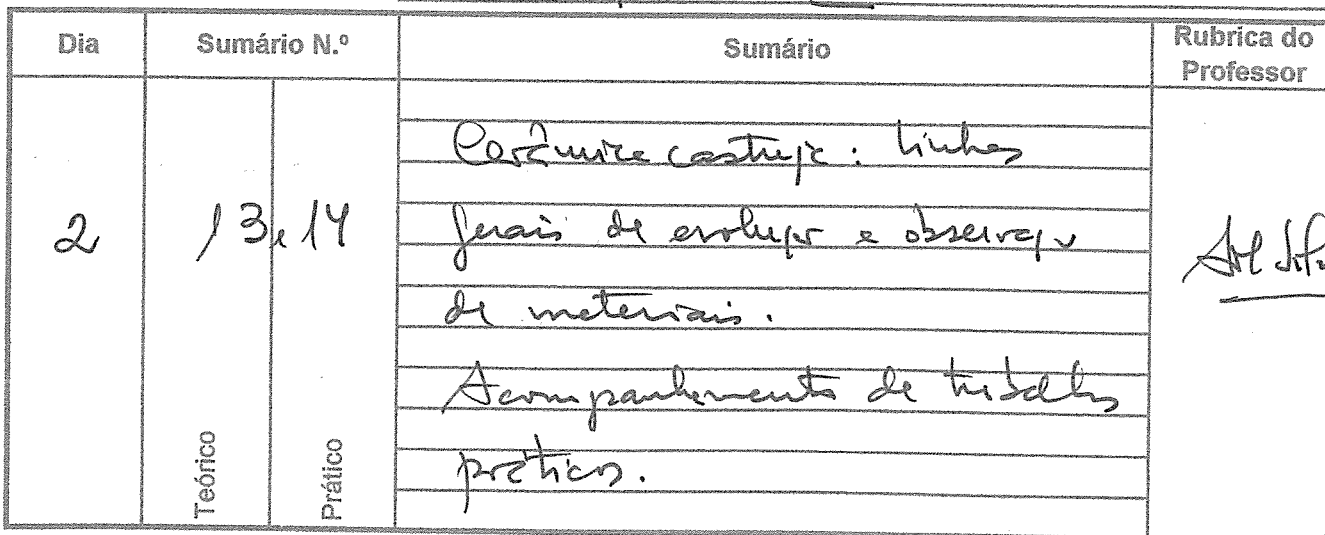 Dia Sumário N.º Sumário Rubrica do Professor
2 13 e 14 Cerâmica castreja: linhas
gerais de evolução e observação
de materiais.
Acompanhamento de trabalhos
práticos.
Teórico Prático